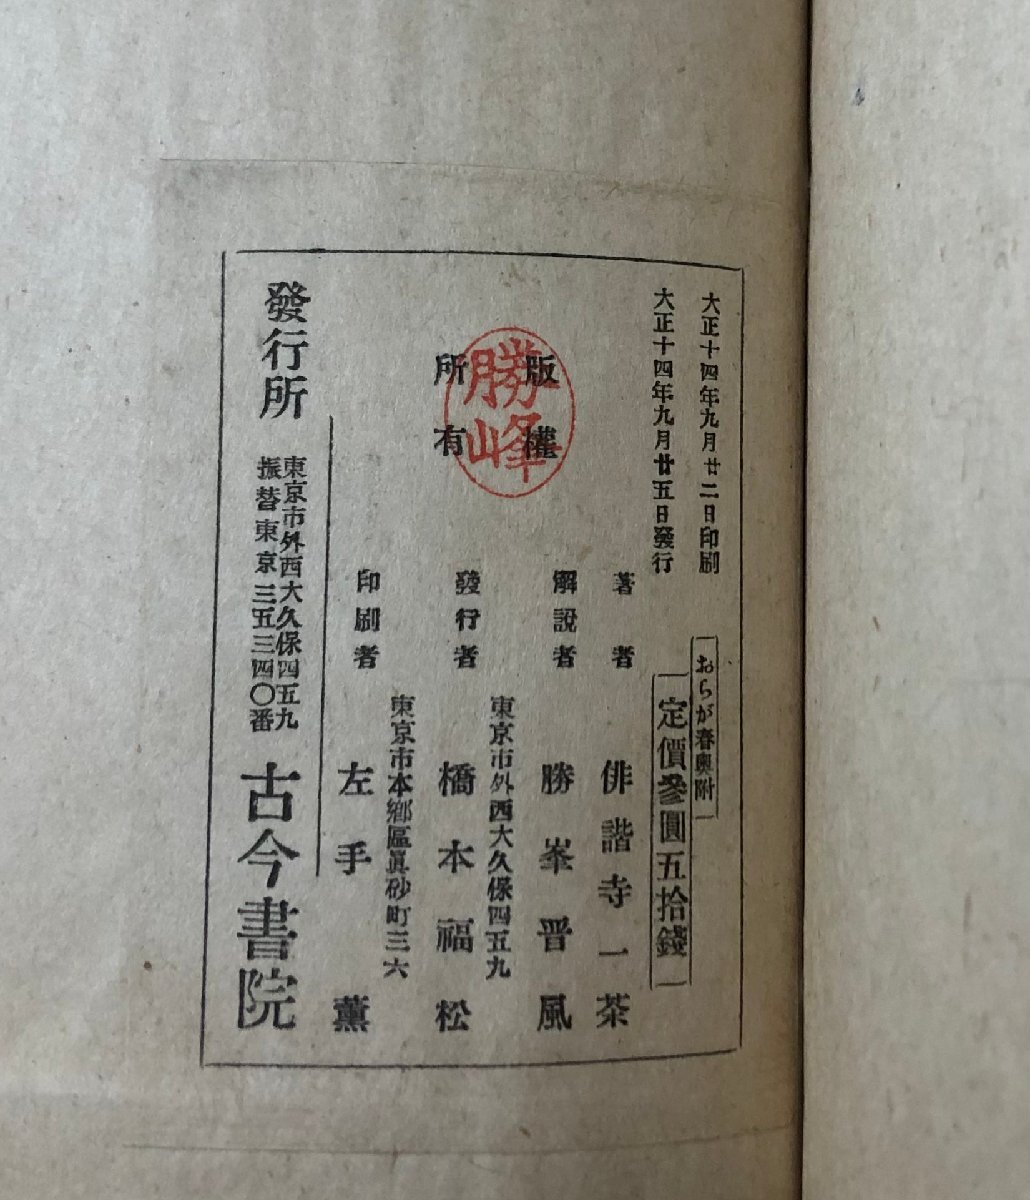 大正十四年九月廿二日印刷
大正十四年九月廿五日發行
おらが春奧附
定價參圓五拾錢
版權
所有
勝峰
著者 俳諧寺一茶
解說者 勝峯晋風
東京市外西大久保四五九
發行者 橋本福松
東京市本鄉區眞砂町三六
印刷者 左手薰
發行所
東京市外西大久保四五九
振替東京三五三四〇番
古今書院